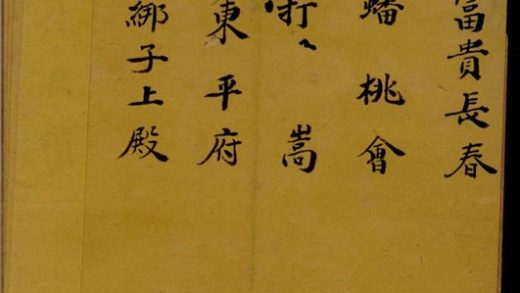 富貴長春
蟠桃會
打、嵩
東平府
綁子上殿